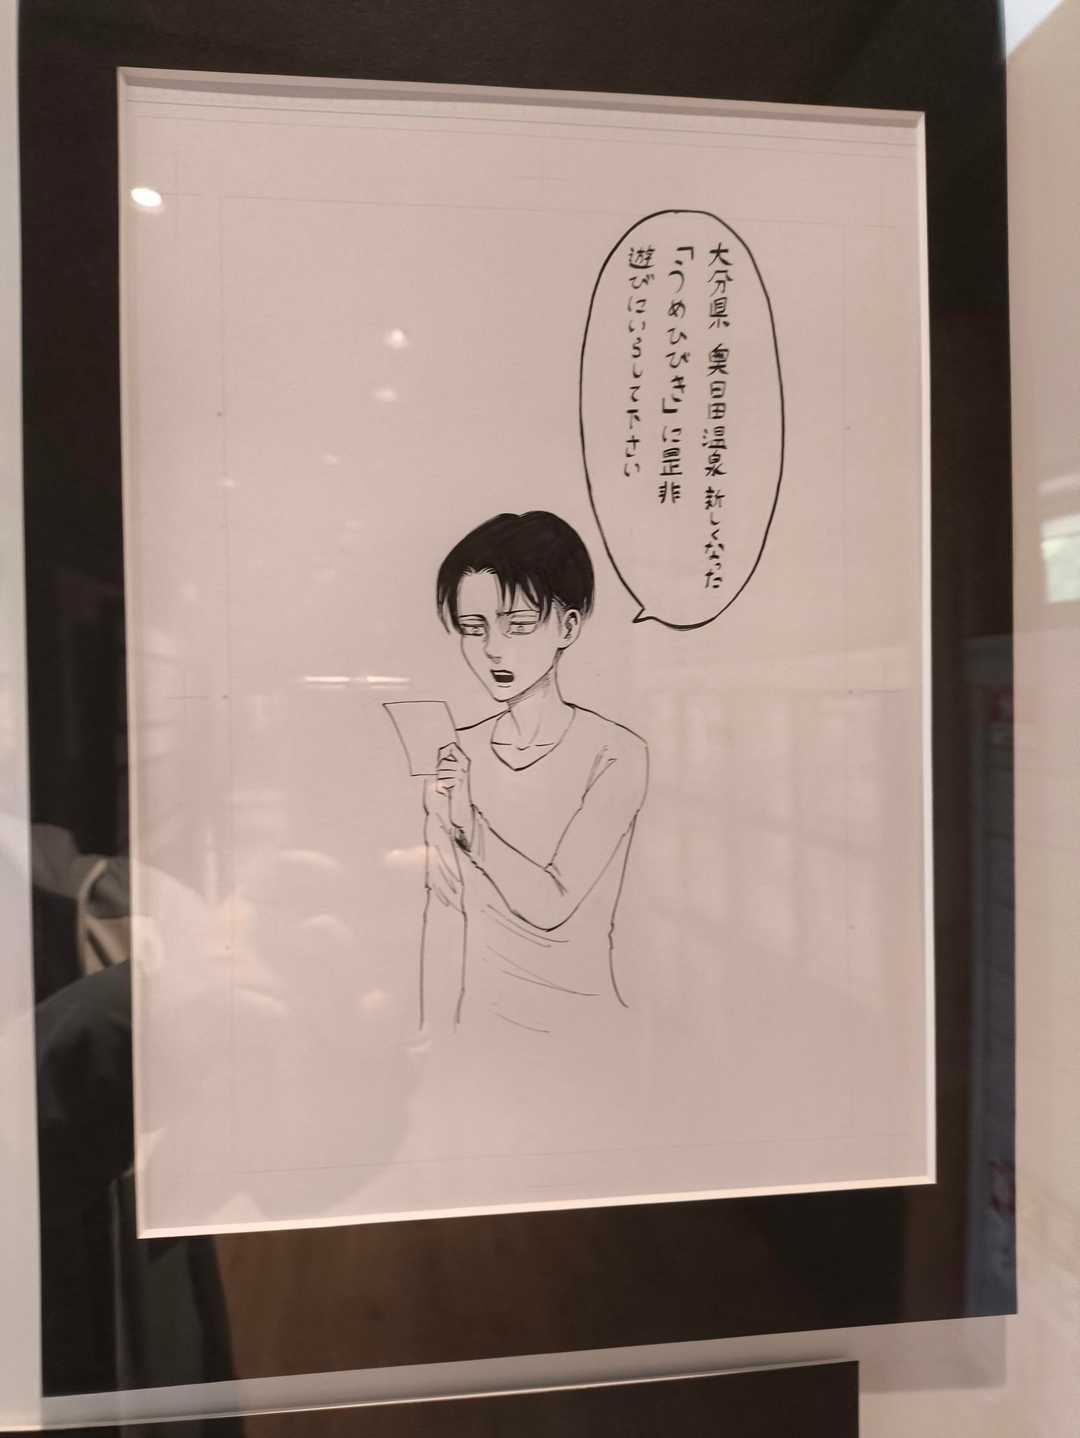 大分県 奥日田温泉 新しくなった
「うめひびき」に是非
遊びにいらして下さい